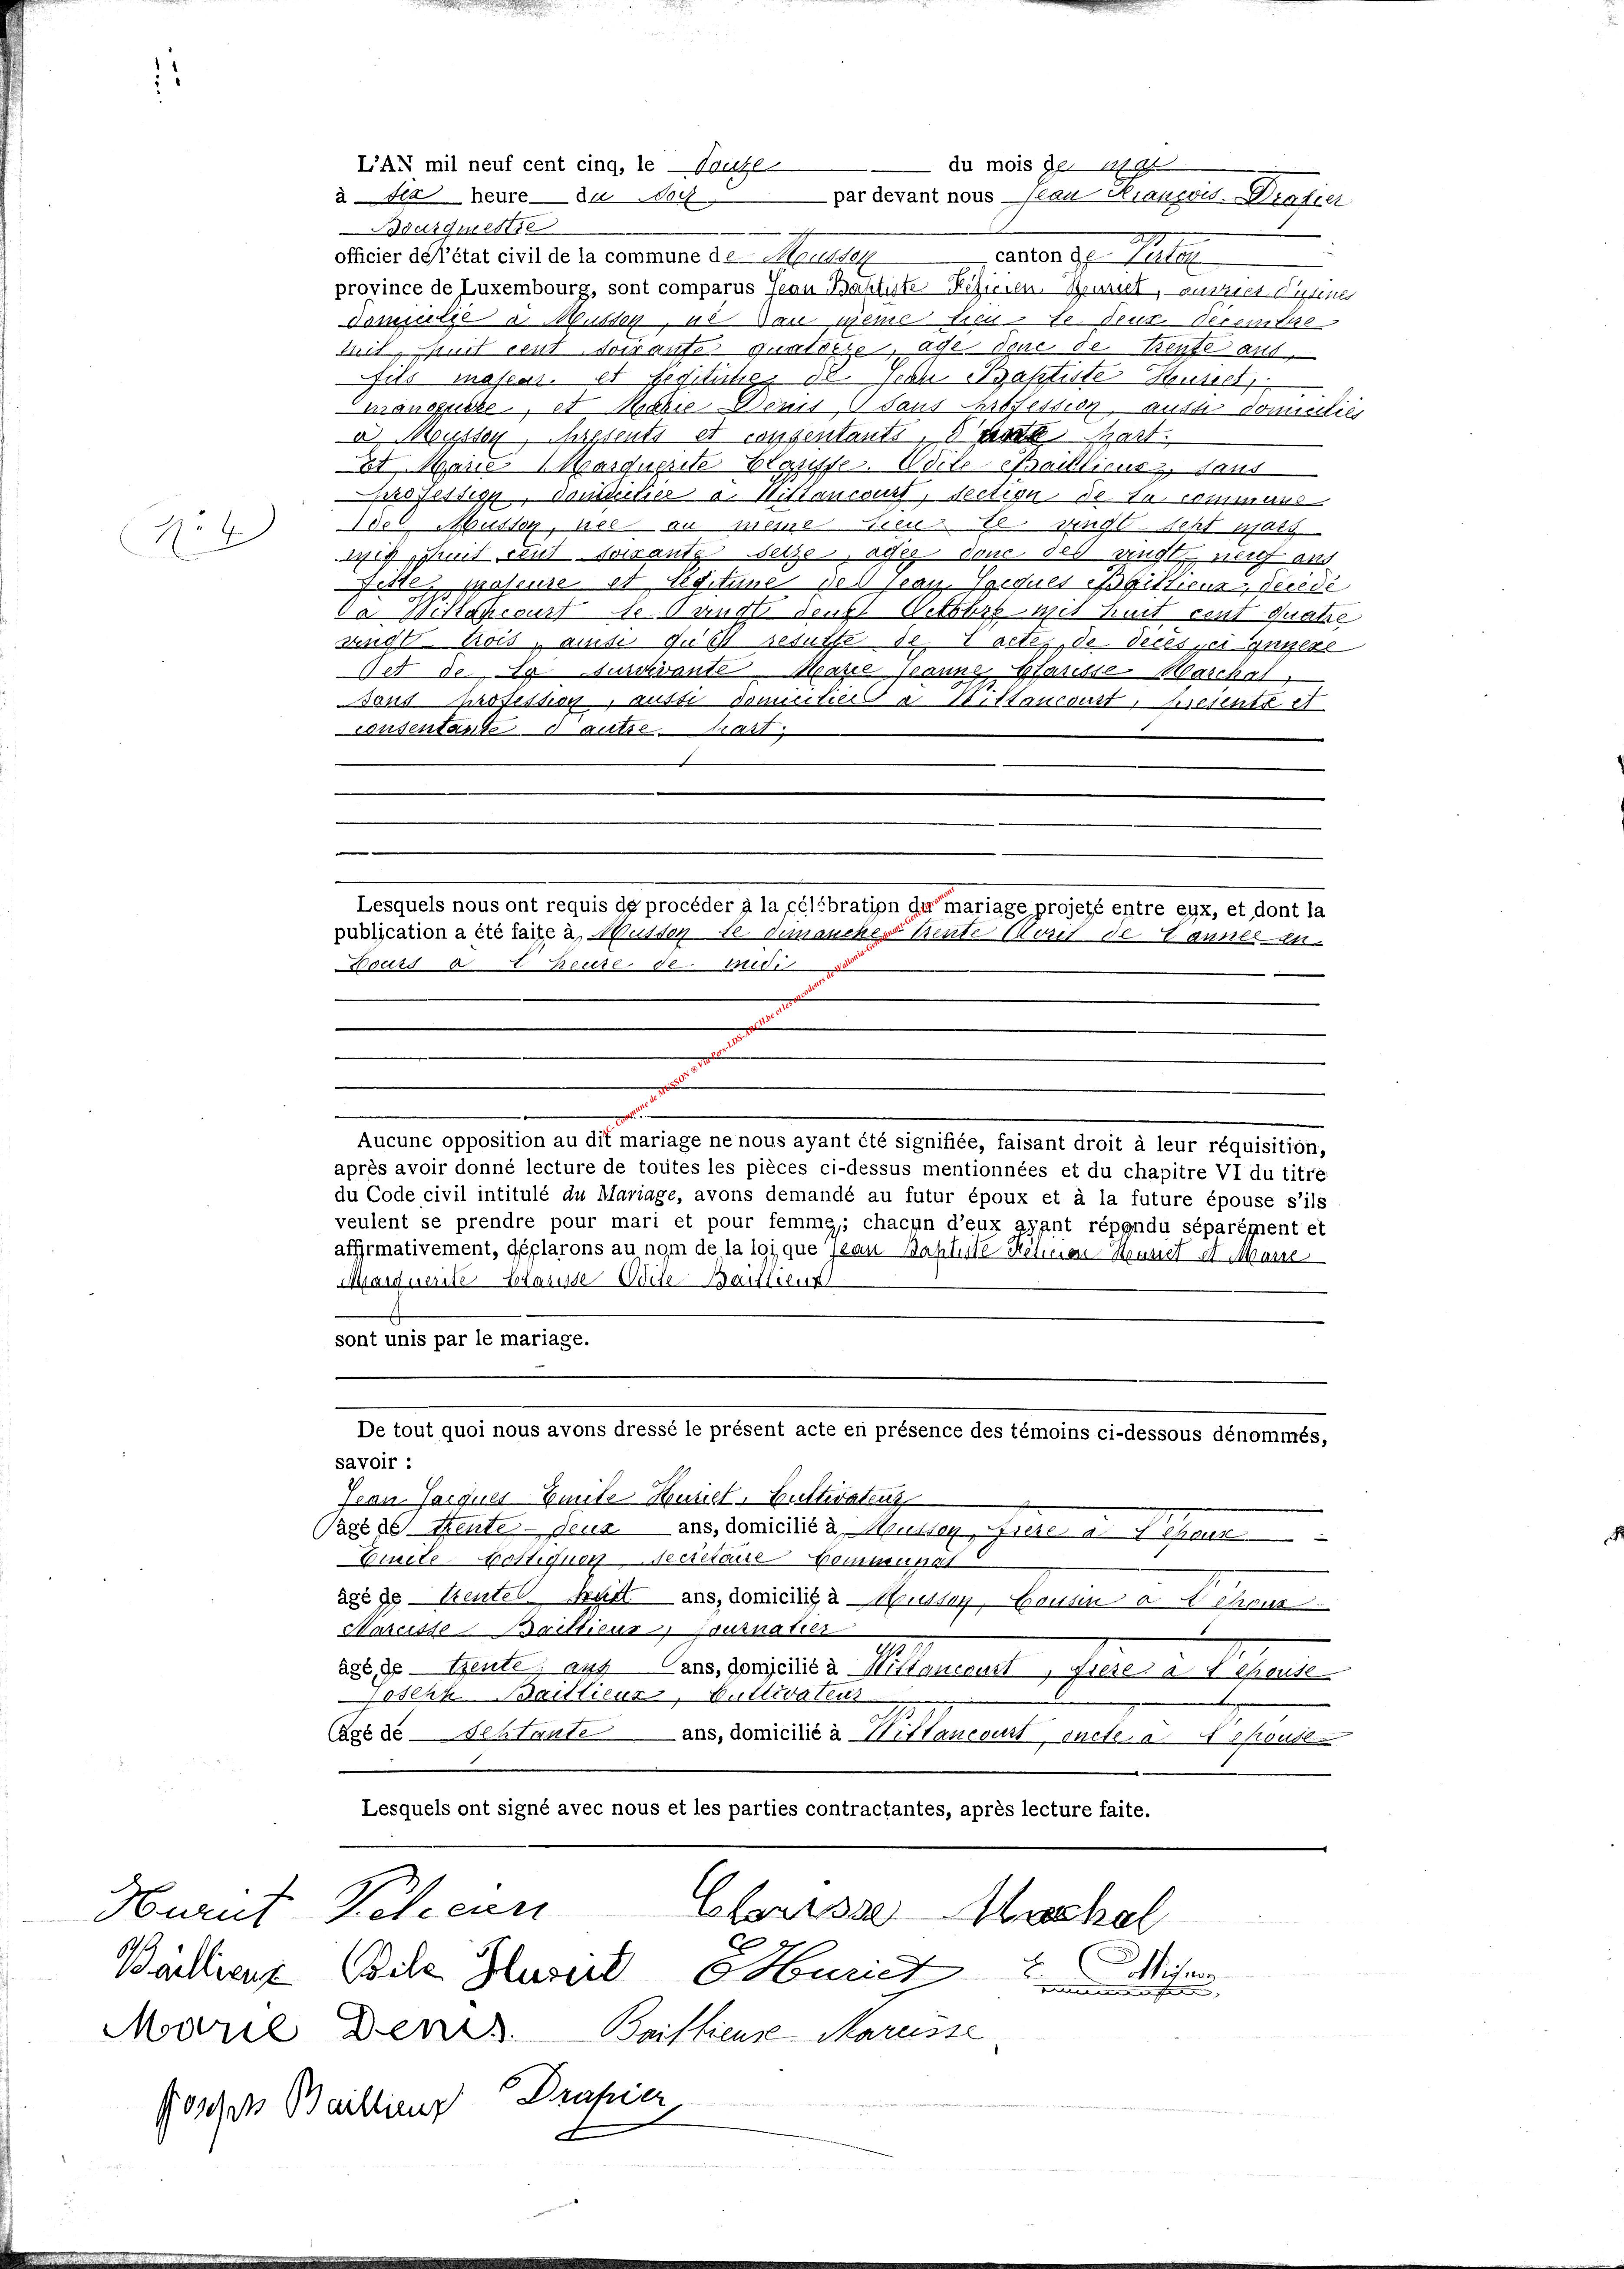 L'AN mil neuf cent cinq, le douze du mois de mai
à six heure du soir par devant nous Jean François Drapier
Bourgmestre
officier de l'état civil de la commune de Musson canton de Virton
province de Luxembourg, sont comparus Jean Baptiste Félicien Huriet, ouvrier d'usines
domicilié à Musson, né au même lieu le deux décembre
mil huit cent soixante quatorze, âgé donc de trente ans,
fils majeur et légitime de Jean Baptiste Huriet,
manoeuvre, et Marie Denis, sans profession, aussi domiciliés
à Musson, présents et consentants, d'une part.
Et Marie Marguerite Clarisse Odile Baillieux, sans
profession, domiciliée à Willancourt, section de la commune
de Musson, née au même lieu le vingt sept mars
mil huit cent soixante seize, agée donc de vingt neuf ans
fille majeure et légitime de Jean Jacques Baillieux, décédé
à Willancourt le vingt deux Octobre mil huit cent quatre
vingt trois, ainsi qu'il résulte de l'acte de décès ci annexé
et de la survivante Marie Jeanne Clarisse Marchal,
sans profession, aussi domiciliée à Willancourt, présente et
consentante d'autre part.
Lesquels nous ont requis de procéder à la célébration du mariage projeté entre eux, et dont la
publication a été faite à Musson le dimanche trente Avril de l'année en
cours à l'heure de midi
AC- Commune de MUSSON @ Via Pers-LDS-ARCH.be et les encodeurs de Wallonia-Gen
Aucune opposition au dit mariage ne nous ayant été signifiée, faisant droit à leur réquisition,
après avoir donné lecture de toutes les pièces ci-dessus mentionnées et du chapitre VI du titre
du Code civil intitulé du Mariage, avons demandé au futur époux et à la future épouse s'ils
veulent se prendre pour mari et pour femme; chacun d'eux ayant répondu séparément et
affirmativement, déclarons au nom de la loi que Jean Baptiste Félicien Huriet et Marie
Marguerite Clarisse Odile Baillieux
sont unis par le mariage.
De tout quoi nous avons dressé le présent acte en présence des témoins ci-dessous dénommés,
savoir :
Jean Jacques Emile Huriet, Cultivateur
âgé de trente-deux ans, domicilié à Musson, frère à l'époux
Emile Collignon secrétaire communal
âgé de trente huit ans, domicilié à Musson, Cousin à l'époux
Narcisse Baillieux, Journalier
âgé de trente ans ans, domicilié à Willancourt, frère à l'épouse
Joseph Baillieux, Cultivateur
âgé de septante ans, domicilié à Willancourt, oncle à l'épouse
Lesquels ont signé avec nous et les parties contractantes, après lecture faite.
N° 4
Huriet Félicien Clarisse Marchal
Baillieux Odile Huriet E Huriet E. Collignon
Marie Denis Baillieux Narcisse
Joseph Baillieux Drapier